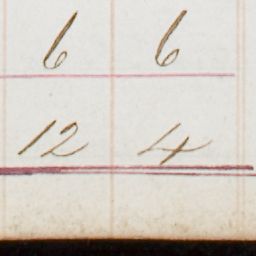 6 6
12 4